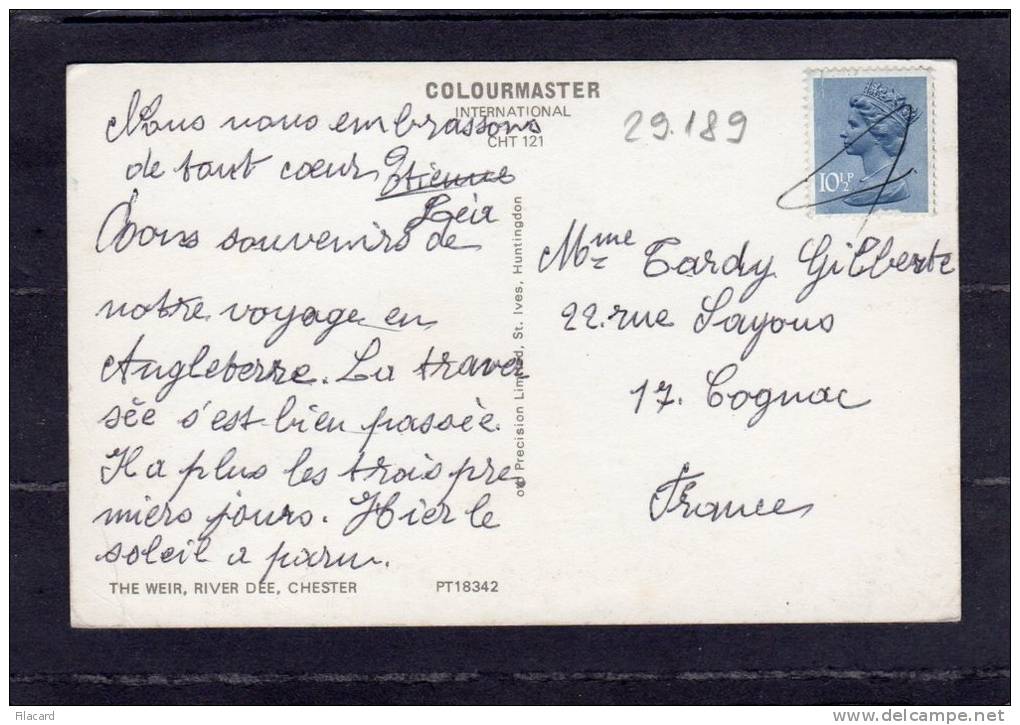 COLOURMASTER
INTERNATIONAL
CHT 121
29.189
10½P
Nous vous embrassons
de tout cœur Etienne
Léa
Bons souvenirs de
notre voyage en
Angleterre. La traver
sée s'est bien passée.
Il a plus les trois pre
miers jours. Hier le
soleil a paru.
THE WEIR, RIVER DEE, CHESTER PT18342
Precision Limited, St. Ives, Huntingdon
Mme Tardy Gilberte
22. rue Sayous
17. Cognac
France
Filacard
www.delcampe.net